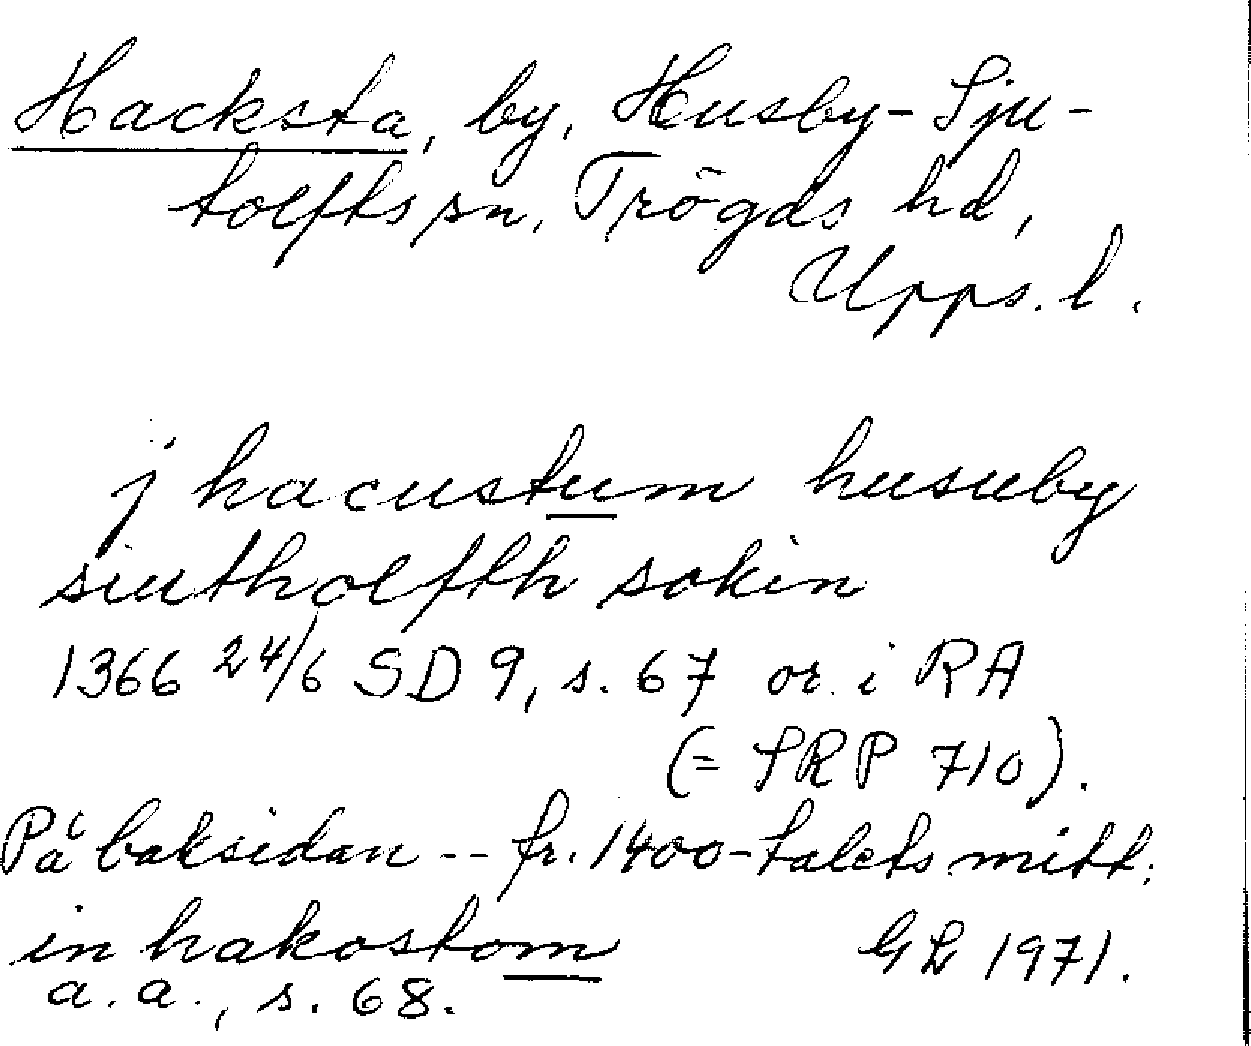 Hacksta, by, Husby-Sju-
tolfts sn, Trögds hd,
Upps. l.
j hacustum husuby
siutholfth sokin
1366 24/6 SD 9, s. 67 or. i RA
(= SRP 710).
På baksidan -- fr. 1400-talets mitt:
in hakostom GL 1971.
a. a., s. 68.